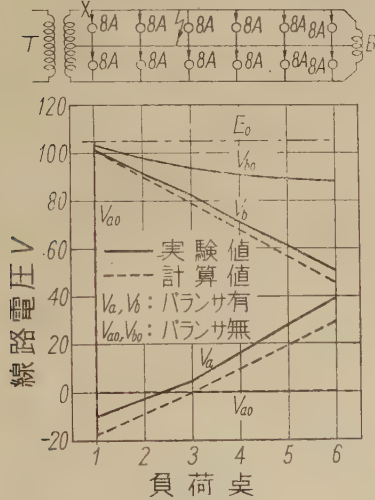 X
T
8A 8A 8A 8A 8A 8A
8A 8A 8A 8A 8A 8A
B
120
100
80
60
40
20
0
-20
線路電圧 V
E₀
V_bo
V_b
V_ao
実験値
計算値
V_a, V_b : バランサ有
V_ao, V_bo : バランサ無
V_a
V_ao
1 2 3 4 5 6
負荷点